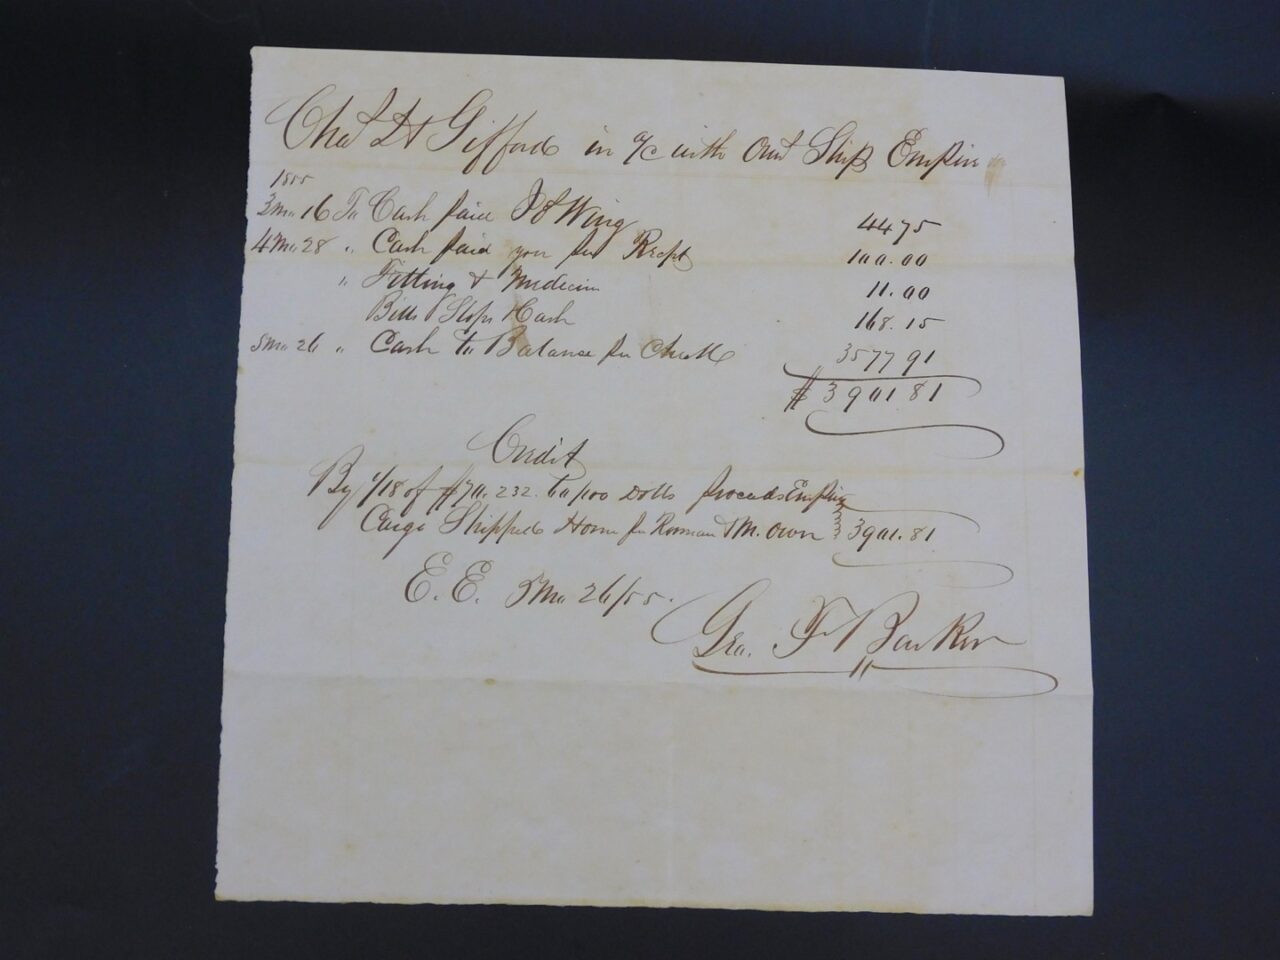 Chas H Gifford in a/c with Own Ship Empire
1855
3 Mo 16 To Cash paid J & W Wing 44 75
4 Mo 28 " Cash paid you per Recpt 100.00
" Fitting & Medicine 11.00
Bills Slops Cash 168.15
5 Mo 26 " Cash to Balance per Check 3577 91
$ 3901 81
Credit
By 1/18 of $70.232. 60/100 Dolls proceeds Empire
Cargo Shipped Home per Roman & M. Own 3901.81
E. E. 5 Mo 26/55.
Geo. F Barker